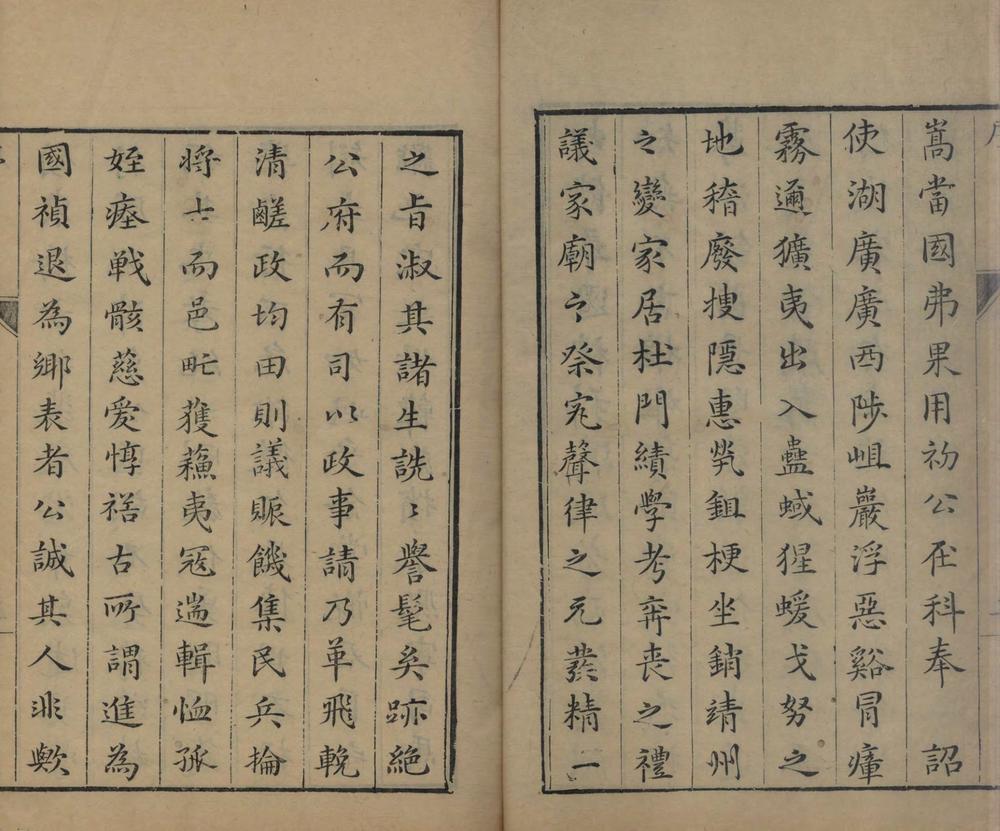 嵩當國弗果用初公在科奉　詔
使湖廣廣西陟岨巖浮惡谿冒瘴
霧邇獷夷出入蠱蜮猩蝯戈努之
地稽廢搜隱惠煢鉏梗坐銷靖州
之變家居杜門績學考弈喪之禮
議家廟之祭究聲律之元發精一
之旨淑其諸生詵〻譽髦矣跡絕
公府而有司以政事請乃革飛輓
清鹺政均田則議賑饑集民兵掄
將士而邑甿獲蘓夷冦遄輯恤孤
姪瘞戰骸慈愛惇禚古所謂進為
國禎退為鄉表者公誠其人非歟